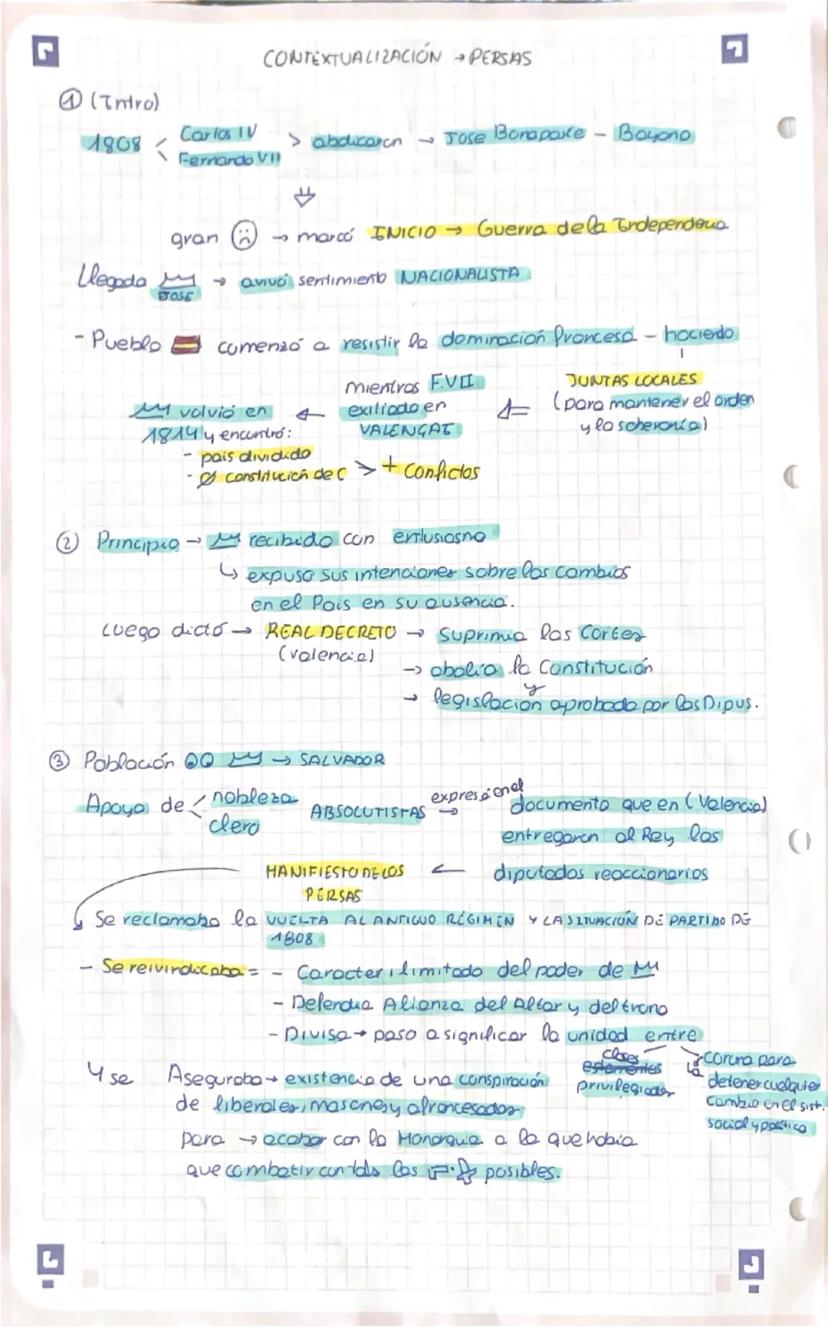 CONTEXTUALIZACIÓN → PERSAS
① (Intro)
1808 < Carlos IV
Fernando VII > abdicaron → Jose Bonaparte - Bayona
gran ☹ → marcó INICIO → Guerra de la Independencia
Llegada JOSE → avivó sentimiento NACIONALISTA
- Pueblo comenzó a resistir la dominación francesa - haciendo
JUNTAS LOCALES
(para mantener el orden
y la soberanía)
mientras F.VII
exiliado en
VALENÇAY
volvió en
1814 y encontró:
- pais dividido
- Ø constitución de C > + Conflictos
② Principio → recibido con entusiasmo
↳ expuso sus intenciones sobre los cambios
en el País en su ausencia.
Luego dictó → REAL DECRETO → Suprimia las Cortes
(Valencia)
→ abolía la Constitución
y
→ legislación aprobada por los Dipus.
③ Población → SALVADOR
Apoyo de < nobleza
clero
ABSOLUTISTAS expresó en el → documento que en (Valencia)
entregaron al Rey los
diputados reaccionarios
MANIFIESTO DE LOS
PERSAS ←
Se reclamaba la VUELTA AL ANTIGUO RÉGIMEN Y LA SITUACIÓN DE PARTIDO DE
1808
- Se reivindicaba = - Caracter ilimitado del poder de
- Defendia Alianza del Altar y del trono
- Divisa → paso a significar la unidad entre
clases
estamentos
privilegiados
corona para
detener cualquier
cambio en el sist.
social y político
Y se Aseguraba → existencia de una conspiración
de liberales, masones y afrancesados
para → acabar con la Monarquia a la que habia
que combatir con tds las posibles.